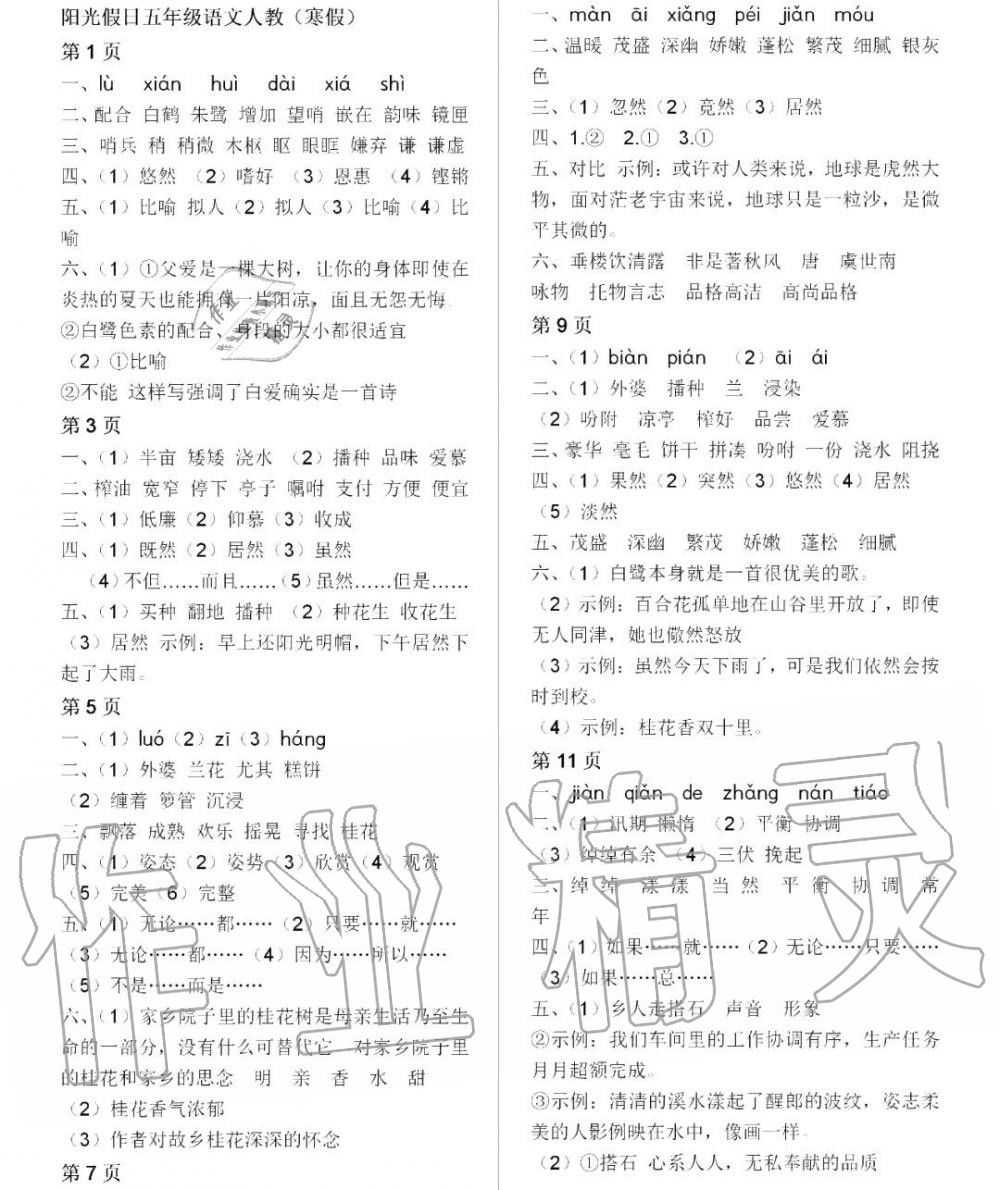 阳光假日五年级语文人教（寒假）
第 1 页
一、lù xián huì dài xiá shì
二、配合 白鹤 朱鹭 增加 望哨 嵌在 韵味 镜匣
三、哨兵 稍 稍微 木枢 眍 眼眶 嫌弃 谦 谦虚
四、（1）悠然 （2）嗜好 （3）恩惠 （4）铿锵
五、（1）比喻 拟人（2）拟人（3）比喻（4）比
喻
六、（1）①父爱是一棵大树，让你的身体即使在
炎热的夏天也能拥有一片阳凉，面且无怨无悔
②白鹭色素的配合、身段的大小都很适宜
（2）①比喻
②不能 这样写强调了白爱确实是一首诗
第 3 页
一、（1）半亩 矮矮 浇水 （2）播种 品味 爱慕
二、榨油 宽窄 停下 亭子 嘱咐 支付 方便 便宜
三、（1）低廉（2）仰慕（3）收成
四、（1）既然（2）居然（3）虽然
（4）不但……而且……（5）虽然……但是……
五、（1）买种 翻地 播种 （2）种花生 收花生
（3）居然 示例：早上还阳光明帽，下午居然下
起了大雨。
第 5 页
一、（1）luó（2）zī（3）háng
二、（1）外婆 兰花 尤其 糕饼
（2）缠着 箩管 沉浸
三、飘落 成熟 欢乐 摇晃 寻找 桂花
四、（1）姿态（2）姿势（3）欣赏（4）观赏
（5）完美（6）完整
五、（1）无论……都……（2）只要……就……
（3）无论……都……（4）因为……所以……
（5）不是……而是……
六、（1）家乡院子里的桂花树是母亲生活乃至生
命的一部分，没有什么可替代它 对家乡院子里
的桂花和家乡的思念 明 亲 香 水 甜
（2）桂花香气浓郁
（3）作者对故乡桂花深深的怀念
第 7 页
一、màn āi xiǎng péi jiǎn móu
二、温暖 茂盛 深幽 娇嫩 蓬松 繁茂 细腻 银灰
色
三、（1）忽然（2）竟然（3）居然
四、1.② 2.① 3.①
五、对比 示例：或许对人类来说，地球是虎然大
物，面对茫老宇宙来说，地球只是一粒沙，是微
平其微的。
六、垂楼饮清露 非是著秋风 唐 虞世南
咏物 托物言志 品格高洁 高尚品格
第 9 页
一、（1）biàn pián （2）āi ái
二、（1）外婆 播种 兰 浸染
（2）吩附 凉亭 榨好 品尝 爱慕
三、豪华 毫毛 饼干 拼凑 吩咐 一份 浇水 阻挠
四、（1）果然（2）突然（3）悠然（4）居然
（5）淡然
五、茂盛 深幽 繁茂 娇嫩 蓬松 细腻
六、（1）白鹭本身就是一首很优美的歌。
（2）示例：百合花孤单地在山谷里开放了，即使
无人同津，她也儆然怒放
（3）示例：虽然今天下雨了，可是我们依然会按
时到校。
（4）示例：桂花香双十里。
第 11 页
一、jiàn qiǎn de zhǎng nán tiáo
二、（1）汛期 懒惰 （2）平衡 协调
（3）绰绰有余 （4）三伏 挽起
三、绰 绰 漾 漾 当 然 平 衡 协 调 常
年
四、（1）如果……就……（2）无论……只要……
（3）如果……总……
五、（1）乡人走搭石 声音 形象
②示例：我们车间里的工作协调有序，生产任务
月月超额完成。
③示例：清清的溪水漾起了醒郎的波纹，姿志柔
美的人影例映在水中，像画一样
（2）①搭石 心系人人，无私奉献的品质
作业精灵